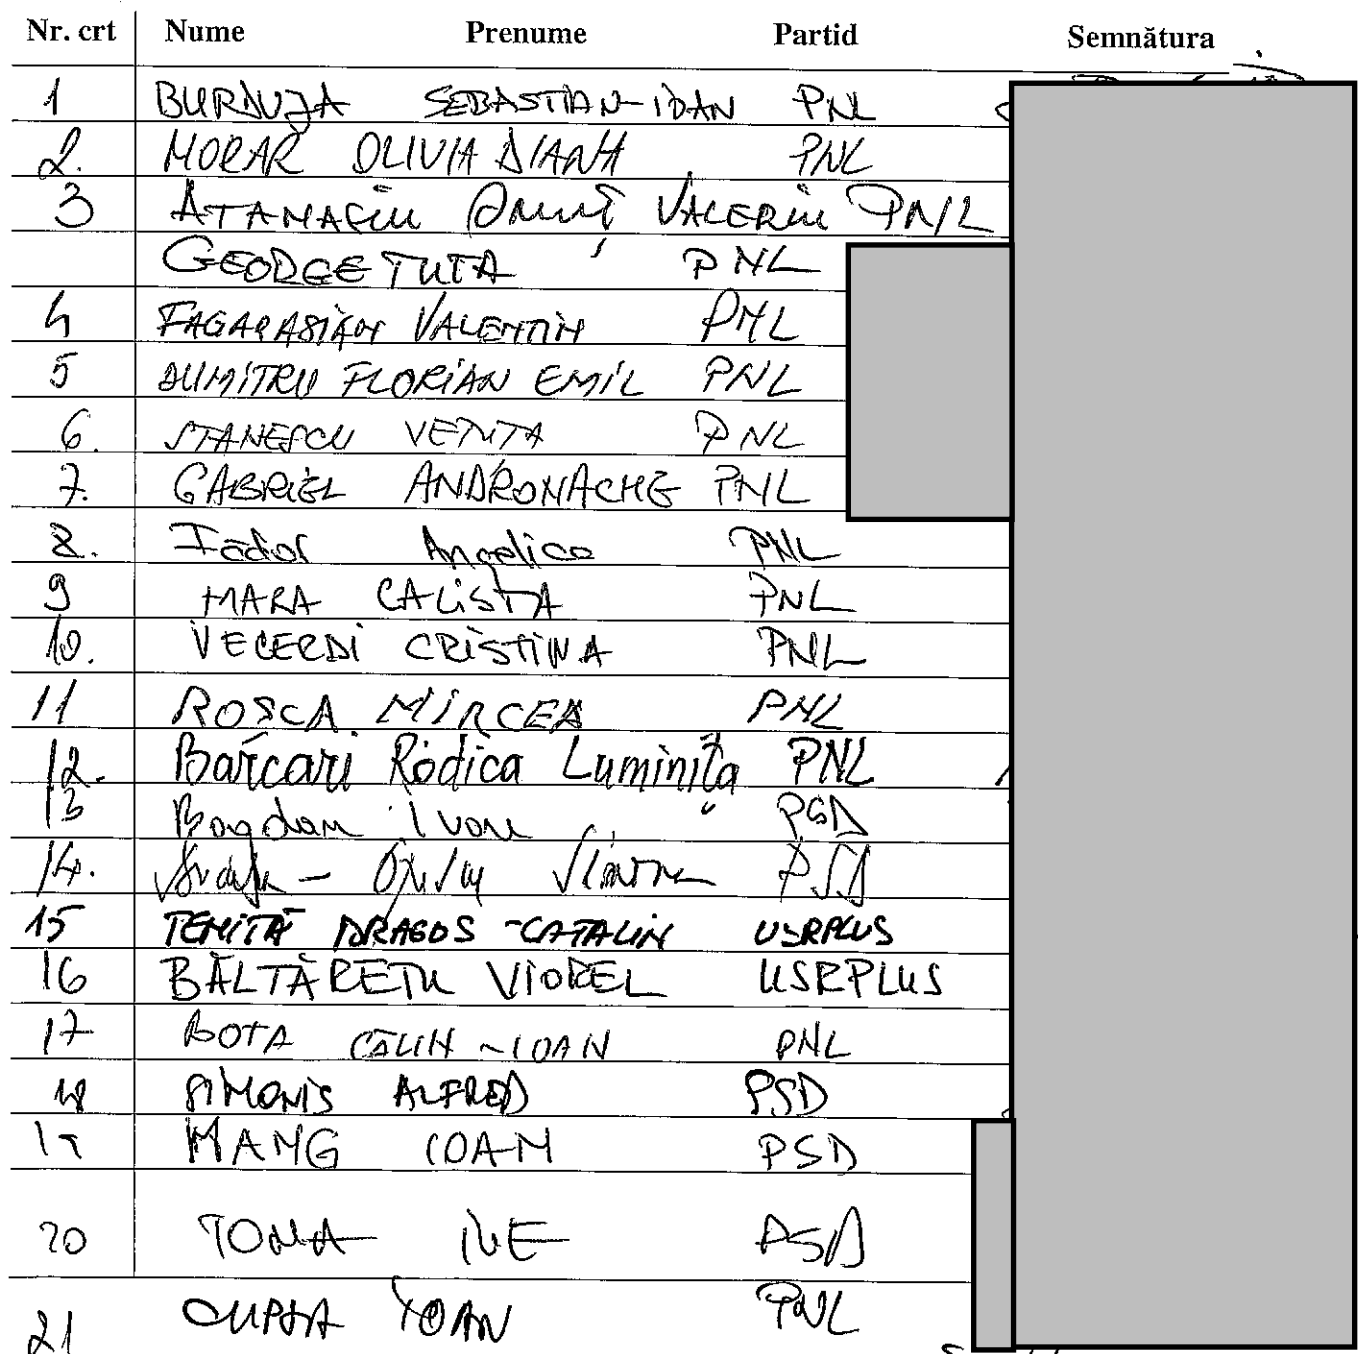 Nr. crt Nume Prenume Partid Semnătura
1 BURDUJA SEBASTIAN-IOAN PNL
2. MORAR OLIVIA DIANA PNL
3 ATANASIU Onuț VALERIU PNL
GEORGE TUTA PNL
4 FAGARASIAN VALENTIN PNL
5 DUMITRU FLORIAN EMIL PNL
6. STANESCU VETUTA PNL
7. GABRIEL ANDRONACHE PNL
8. Fădor Angelica PNL
9 MARA CALISTA PNL
10. VECERDI CRISTINA PNL
11 ROSCA MIRCEA PNL
12. Barcari Rodica Luminița PNL
13 Bogdan Ivan PSD
14. PSD
15 TENITĂ DRAGOS-CATALIN USRPLUS
16 BĂLTĂRETU VIOREL USRPLUS
17 BOTA CĂLIN-IOAN PNL
18 SIMONIS ALFRED PSD
19 MANG IOAN PSD
20 TOMA ILIE PSD
21 CUPȘA IOAN PNL